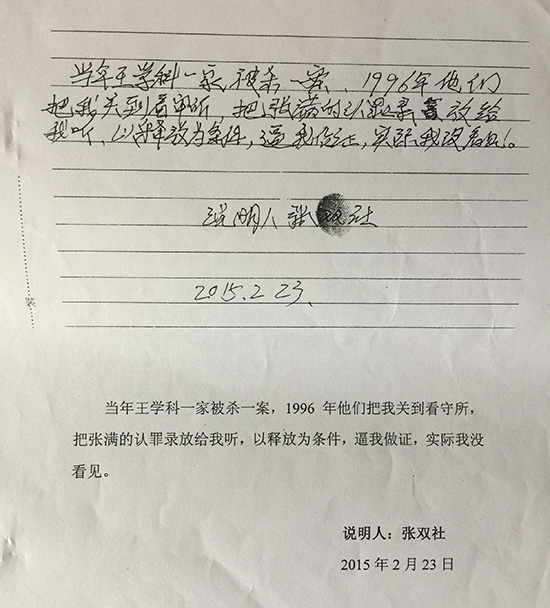 当年王学科一家被杀一案、1996年他们
把我关到看守所 把张满的认罪录音放给
我听、以释放为条件,逼我作证,实际我没看见。
说明人张双社
2015.2 23.
装
当年王学科一家被杀一案,1996 年他们把我关到看守所,
把张满的认罪录放给我听,以释放为条件,逼我做证,实际我没
看见。
说明人:张双社
2015 年 2 月 23 日